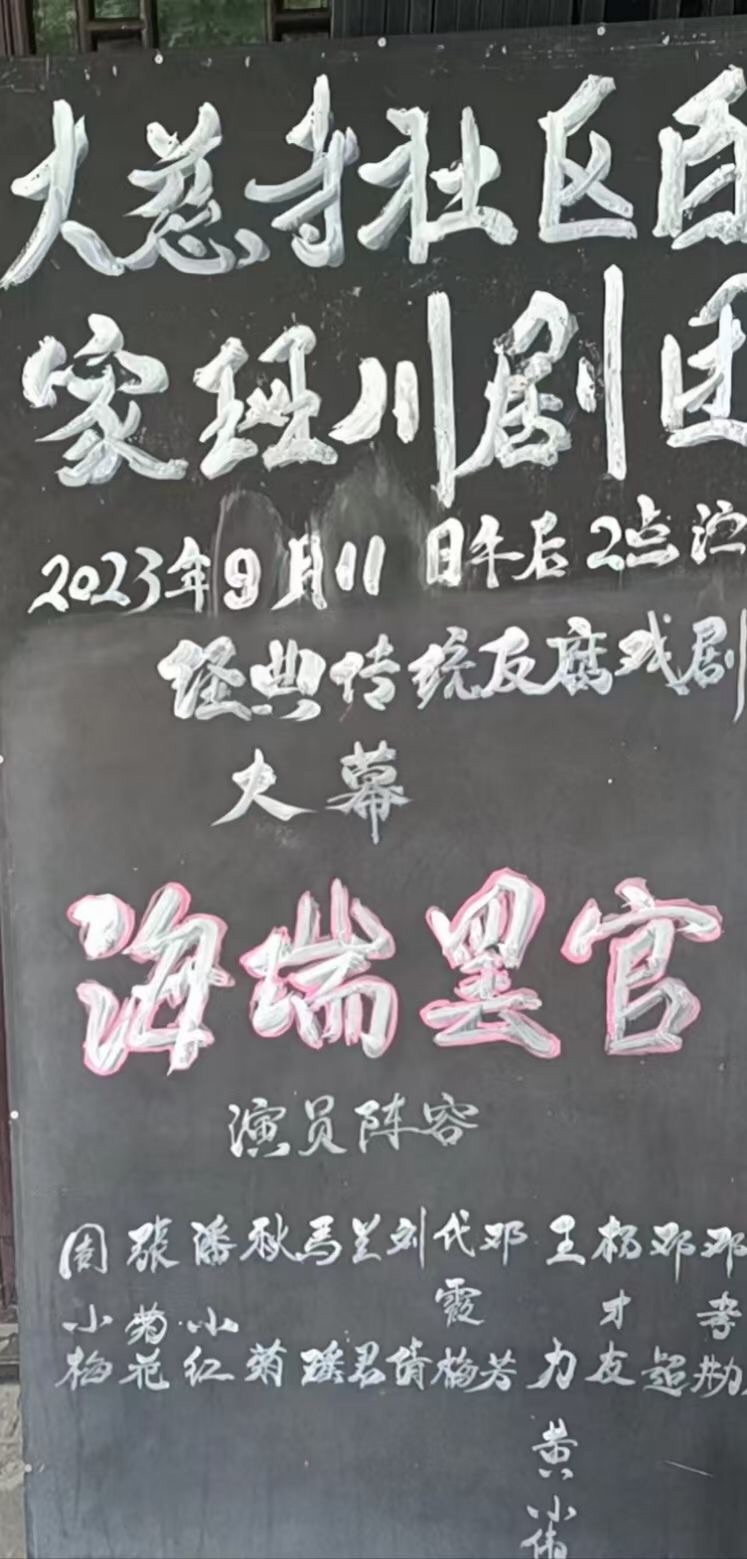 大慈寺社区百
家班川剧团
2023年9月11日午后2点演
经典传统反腐戏剧
大幕
海瑞罢官
演员阵容
周小梅
张菊花
潘小红
秋菊
马瑶
兰君
刘倩
代霞梅
邓芳
王力
杨才友
邓超
邓孝
黄小